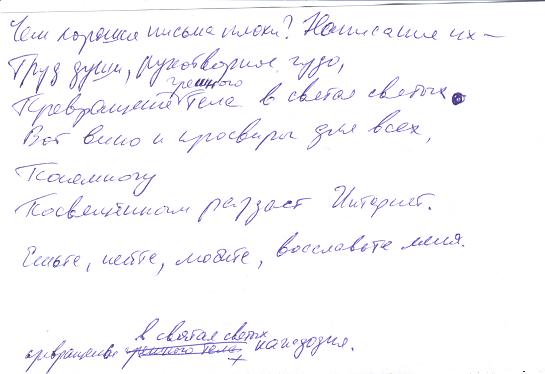 Чем хороши письма плохи? Написание их —
Труд души, рукотворное чудо,
грешного
Превращение Тела в святая святых.
Вот вино и просвиры для всех,
Понемногу
Посвещённым раздаст Интернет.
Ешьте, пейте, любите, восславьте меня.
в святая святых
превращенье грешного тела,